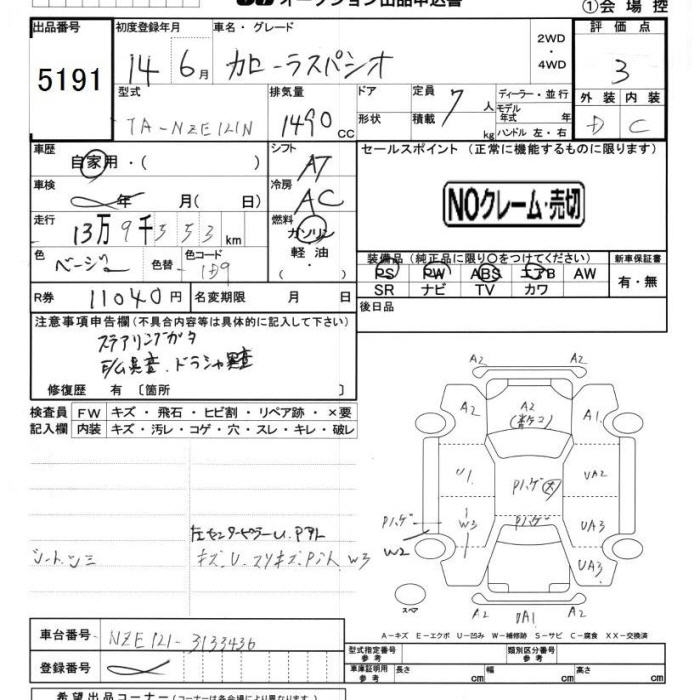 オークション出品申込書
①会場控
出品番号 初度登録年月 車名・グレード 2WD・4WD 評価点
5191 14年6月 カローラスパシオ 3
外装 内装
D C
型式 排気量 ドア 定員 ディーラー・並行
TA-NZE121N 1490cc 形状 積載 7人 kg モデル年式 年 ハンドル 左・右
車歴 シフト セールスポイント (正常に機能するものに限ります)
自家用・( ) AT
車検 冷房
年 月( 日) AC
NOクレーム・売切
走行 燃料
13万9千353km ガソリン
軽油
・( )
色 色替 色コード
ベージュ
装備品 (純正品に限り○をつけてください) 新車保証書
PS PW ABS エアB AW 有・無
SR ナビ TV カワ
R券 11040円 名変期限 月 日 後日品
注意事項申告欄 (不具合内容等は具体的に記入して下さい)
ステアリングガタ
ドラシャ異音
修復歴 有 〔箇所 〕
検査員 FW キズ・飛石・ヒビ割・リペア跡・×要
記入欄 内装 キズ・汚レ・コゲ・穴・スレ・キレ・破レ
A2
A2 A2 A1
U1 Pハゲ 大 UA2
Pハゲ W3 Pハゲ UA3
W2 UA3
左センターピラーU.
シートシミ キズ.U. W3
スペア
A2 UA1 A2
A-キズ E-エクボ U-凹み W-補修跡 S-サビ C-腐食 XX-交換済
車台番号 NZE121-3133436
登録番号
型式指定番号 参考 類別区分番号 参考
車庫証明用 参考 長さ cm 幅 cm 高さ cm
希望出品コーナー (コーナーは各会場により異なります)